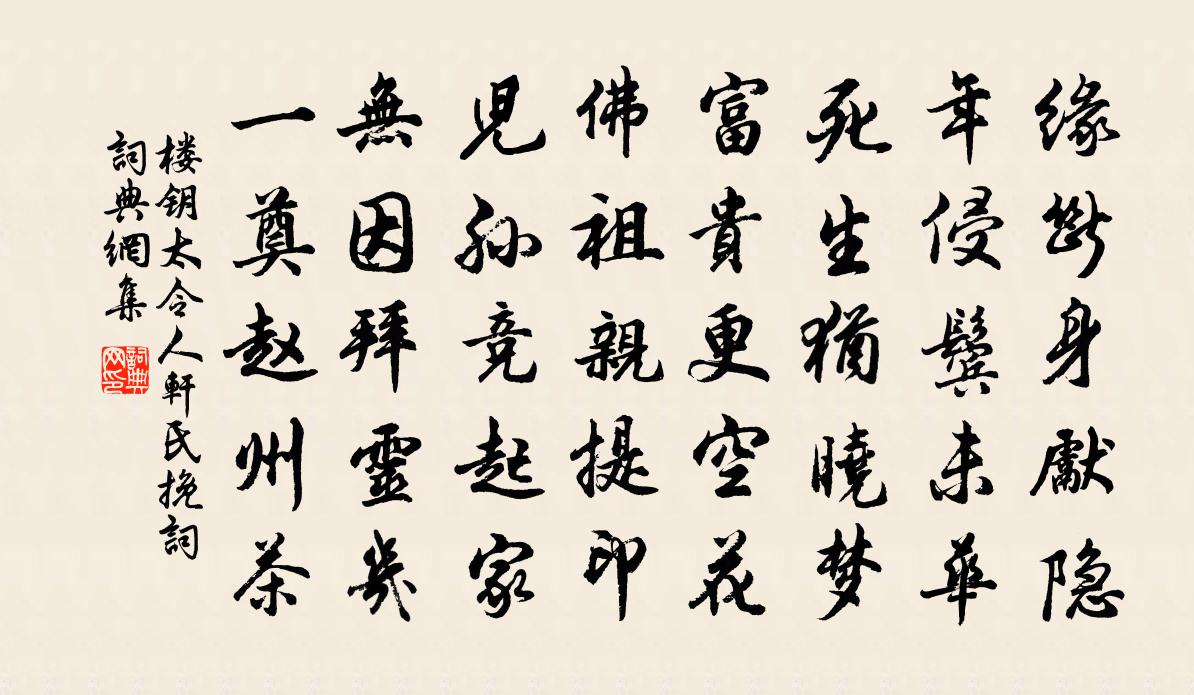 缘斷身獻隐
年侵鬢未華
死生猶曉梦
富貴更空花
佛祖親提印
児孙竞起家
無因拜靈幾
一奠赵州茶
楼钥太令人軒氏挽詞
詞典網集
詞典网印